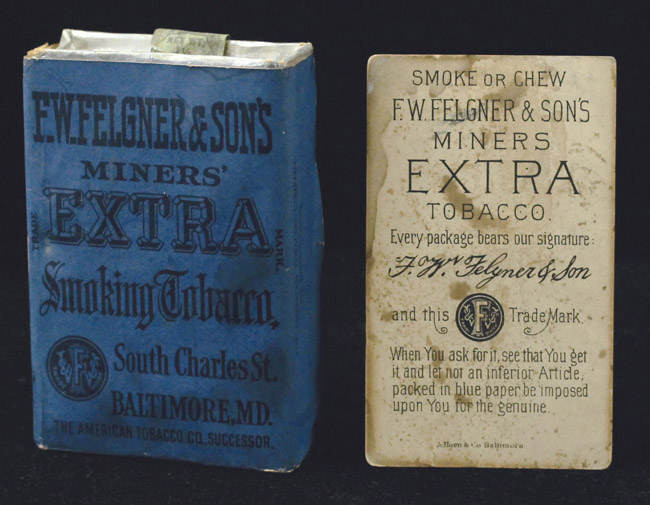 F.W. FELGNER & SON'S
MINERS'
EXTRA
TRADE MARK.
Smoking Tobacco,
F
South Charles St.
BALTIMORE, MD.
THE AMERICAN TOBACCO CO. SUCCESSOR.
SMOKE OR CHEW
F.W. FELGNER & SON'S
MINERS
EXTRA
TOBACCO.
Every package bears our signature:
F. W. Felgner & Son
and this F Trade Mark.
When You ask for it, see that You get
it and let not an inferior Article,
packed in blue paper be imposed
upon You for the genuine.
A. Hoen & Co. Baltimore